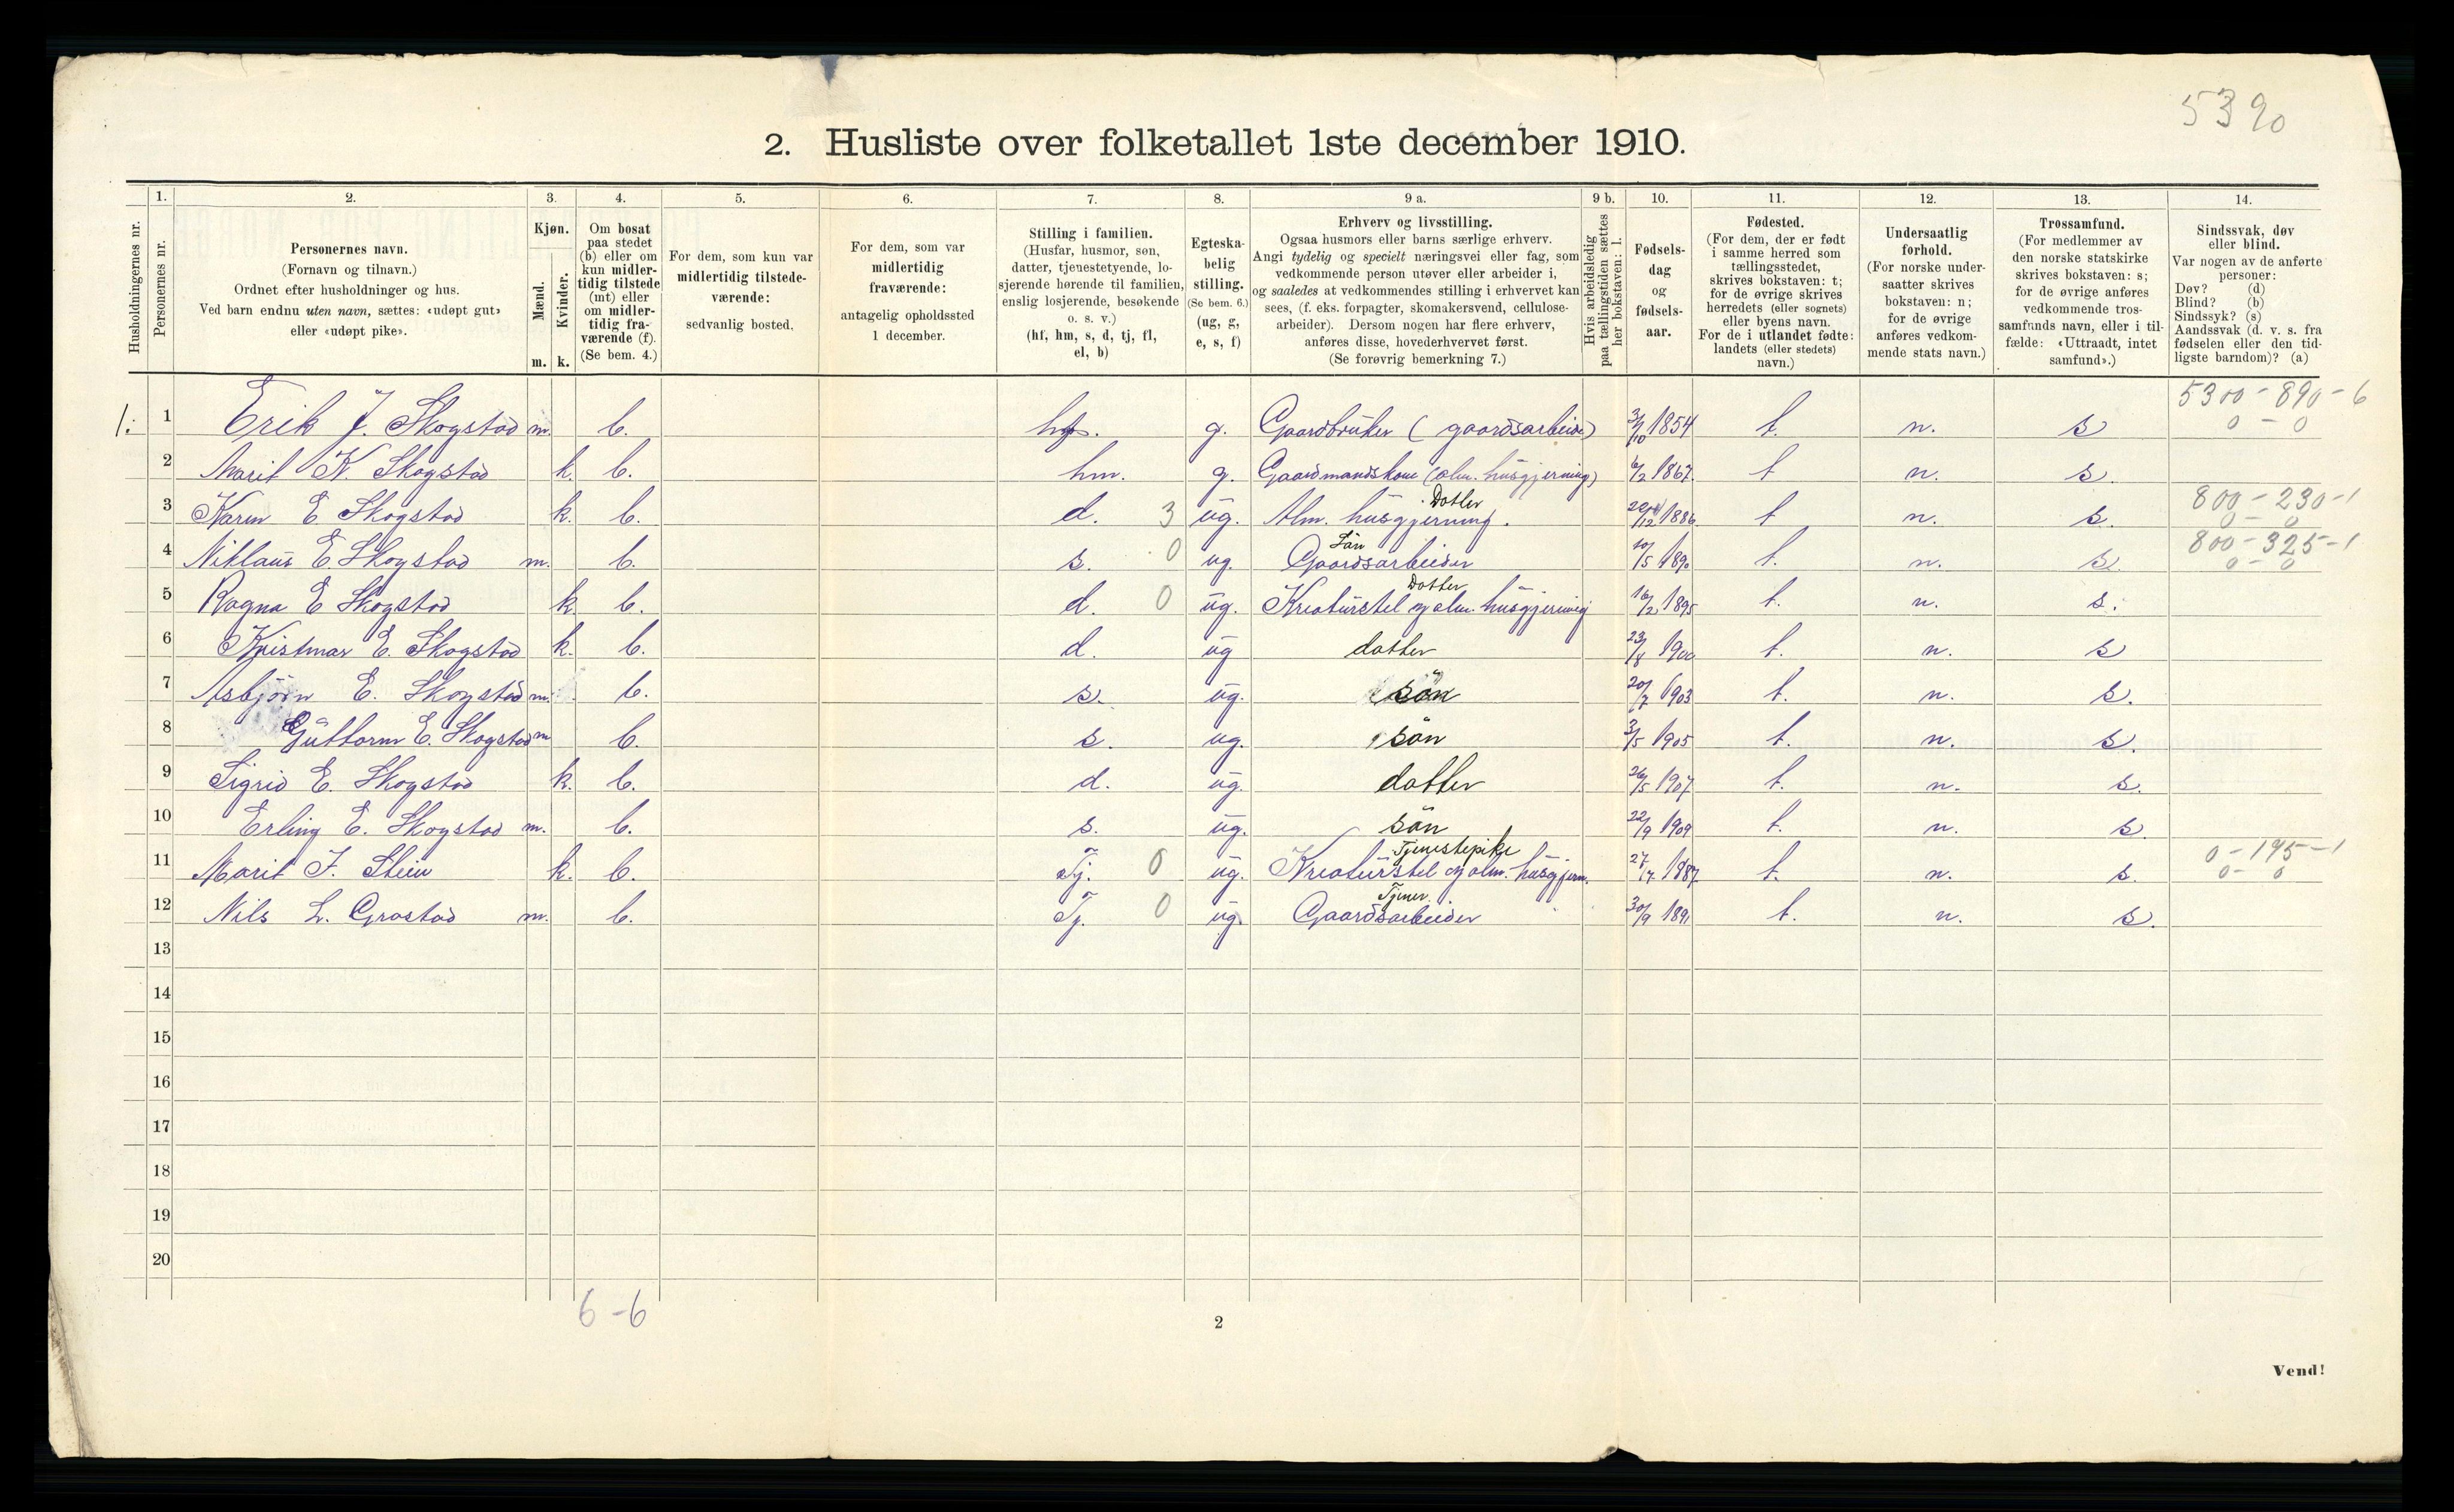 5390
2. Husliste over folketallet 1ste december 1910.
Husholdningernes nr.
1.
Personernes nr.
2.
Personernes navn.
(Fornavn og tilnavn.)
Ordnet efter husholdninger og hus.
Ved barn endnu uten navn, sættes: «udøpt gut»
eller «udøpt pike».
3.
Kjøn.
Mænd.
Kvinder.
m. k.
4.
Om bosat
paa stedet
(b) eller om
kun midler-
tidig tilstede
(mt) eller
om midler-
tidig fra-
værende (f).
(Se bem. 4.)
5.
For dem, som kun var
midlertidig tilstede-
værende:
sedvanlig bosted.
6.
For dem, som var
midlertidig
fraværende:
antagelig opholdssted
1 december.
7.
Stilling i familien.
(Husfar, husmor, søn,
datter, tjenestetyende, lo-
sjerende hørende til familien,
enslig losjerende, besøkende
o. s. v.)
(hf, hm, s, d, tj, fl,
el, b)
8.
Egteska-
belig
stilling.
(Se bem. 6.)
(ug, g,
e, s, f)
9 a.
Erhverv og livsstilling.
Ogsaa husmors eller barns særlige erhverv.
Angi tydelig og specielt næringsvei eller fag, som
vedkommende person utøver eller arbeider i,
og saaledes at vedkommendes stilling i erhvervet kan
sees, (f. eks. forpagter, skomakersvend, cellulose-
arbeider). Dersom nogen har flere erhverv,
anføres disse, hovederhvervet først.
(Se forøvrig bemerkning 7.)
9 b.
Hvis arbeidsledig
paa tællingstiden sættes
her bokstaven: l.
10.
Fødsels-
dag
og
fødsels-
aar.
11.
Fødested.
(For dem, der er født
i samme herred som
tællingsstedet,
skrives bokstaven: t;
for de øvrige skrives
herredets (eller sognets)
eller byens navn.
For de i utlandet fødte:
landets (eller stedets)
navn.)
12.
Undersaatlig
forhold.
(For norske under-
saatter skrives
bokstaven: n;
for de øvrige
anføres vedkom-
mende stats navn.)
13.
Trossamfund.
(For medlemmer av
den norske statskirke
skrives bokstaven: s;
for de øvrige anføres
vedkommende tros-
samfunds navn, eller i til-
fælde: «Uttraadt, intet
samfund».)
14.
Sindssvak, døv
eller blind.
Var nogen av de anførte
personer:
Døv? (d)
Blind? (b)
Sindssyk? (s)
Aandssvak (d. v. s. fra
fødselen eller den tid-
ligste barndom)? (a)
5300 - 890 - 6
1. 1 Erik J. Skogstad m. b. hf. g. Gaardbruker (gaardsarbeide) 3/10 1854 t. n. s 0 - 0
2 Marit K. Skogstad k. b. hm. g. Gaardmandskone (alm. husgjerning) 6/2 1867. t n. s.
Datter 800 - 230 - 1
3 Karen E Skogstad k. b. d. 3 ug. Alm. husgjerning. 1886 t n. s. 0 - 0
Sön 800 - 325 - 1
4 Niklaus E. Skogstad m. b. s. 0 ug. Gaardsarbeider 10/5 1890 t. n. s. 0 - 0
Datter
5 Ragna E Skogstad k b. d. 0 ug. Kreaturstel og alm. husgjerning 16/2 1895 t. n. s.
6 Kristmar E. Skogstad k. b. d. ug datter 23/8 1900 t. n. s
7 Asbjörn E. Skogstad m. b. s. ug. sön 20/7 1903 t. n. s.
8 Guttorm E. Skogstad m b. s. ug. sön 3/5 1905 t. n. s.
9 Sigrid E. Skogstad k. b. d. ug. datter 26/5 1907 t. n. s.
10 Erling E. Skogstad m. b. s. ug. sön 22/9 1909 t. n. s.
Tjenestepike 0 - 195 - 1
11 Marit J. Steien k. b. Tj. 0 ug. Kreaturstel og alm. husgjern. 27/7 1887 t. n. s. 0 - 0
Tjener
12 Nils L. Grostad m. b. Tj. 0 ug. Gaardsarbeider 30/9 1891 t. n. s.
13
14
15
16
17
18
19
20
6 - 6
2
Vend!